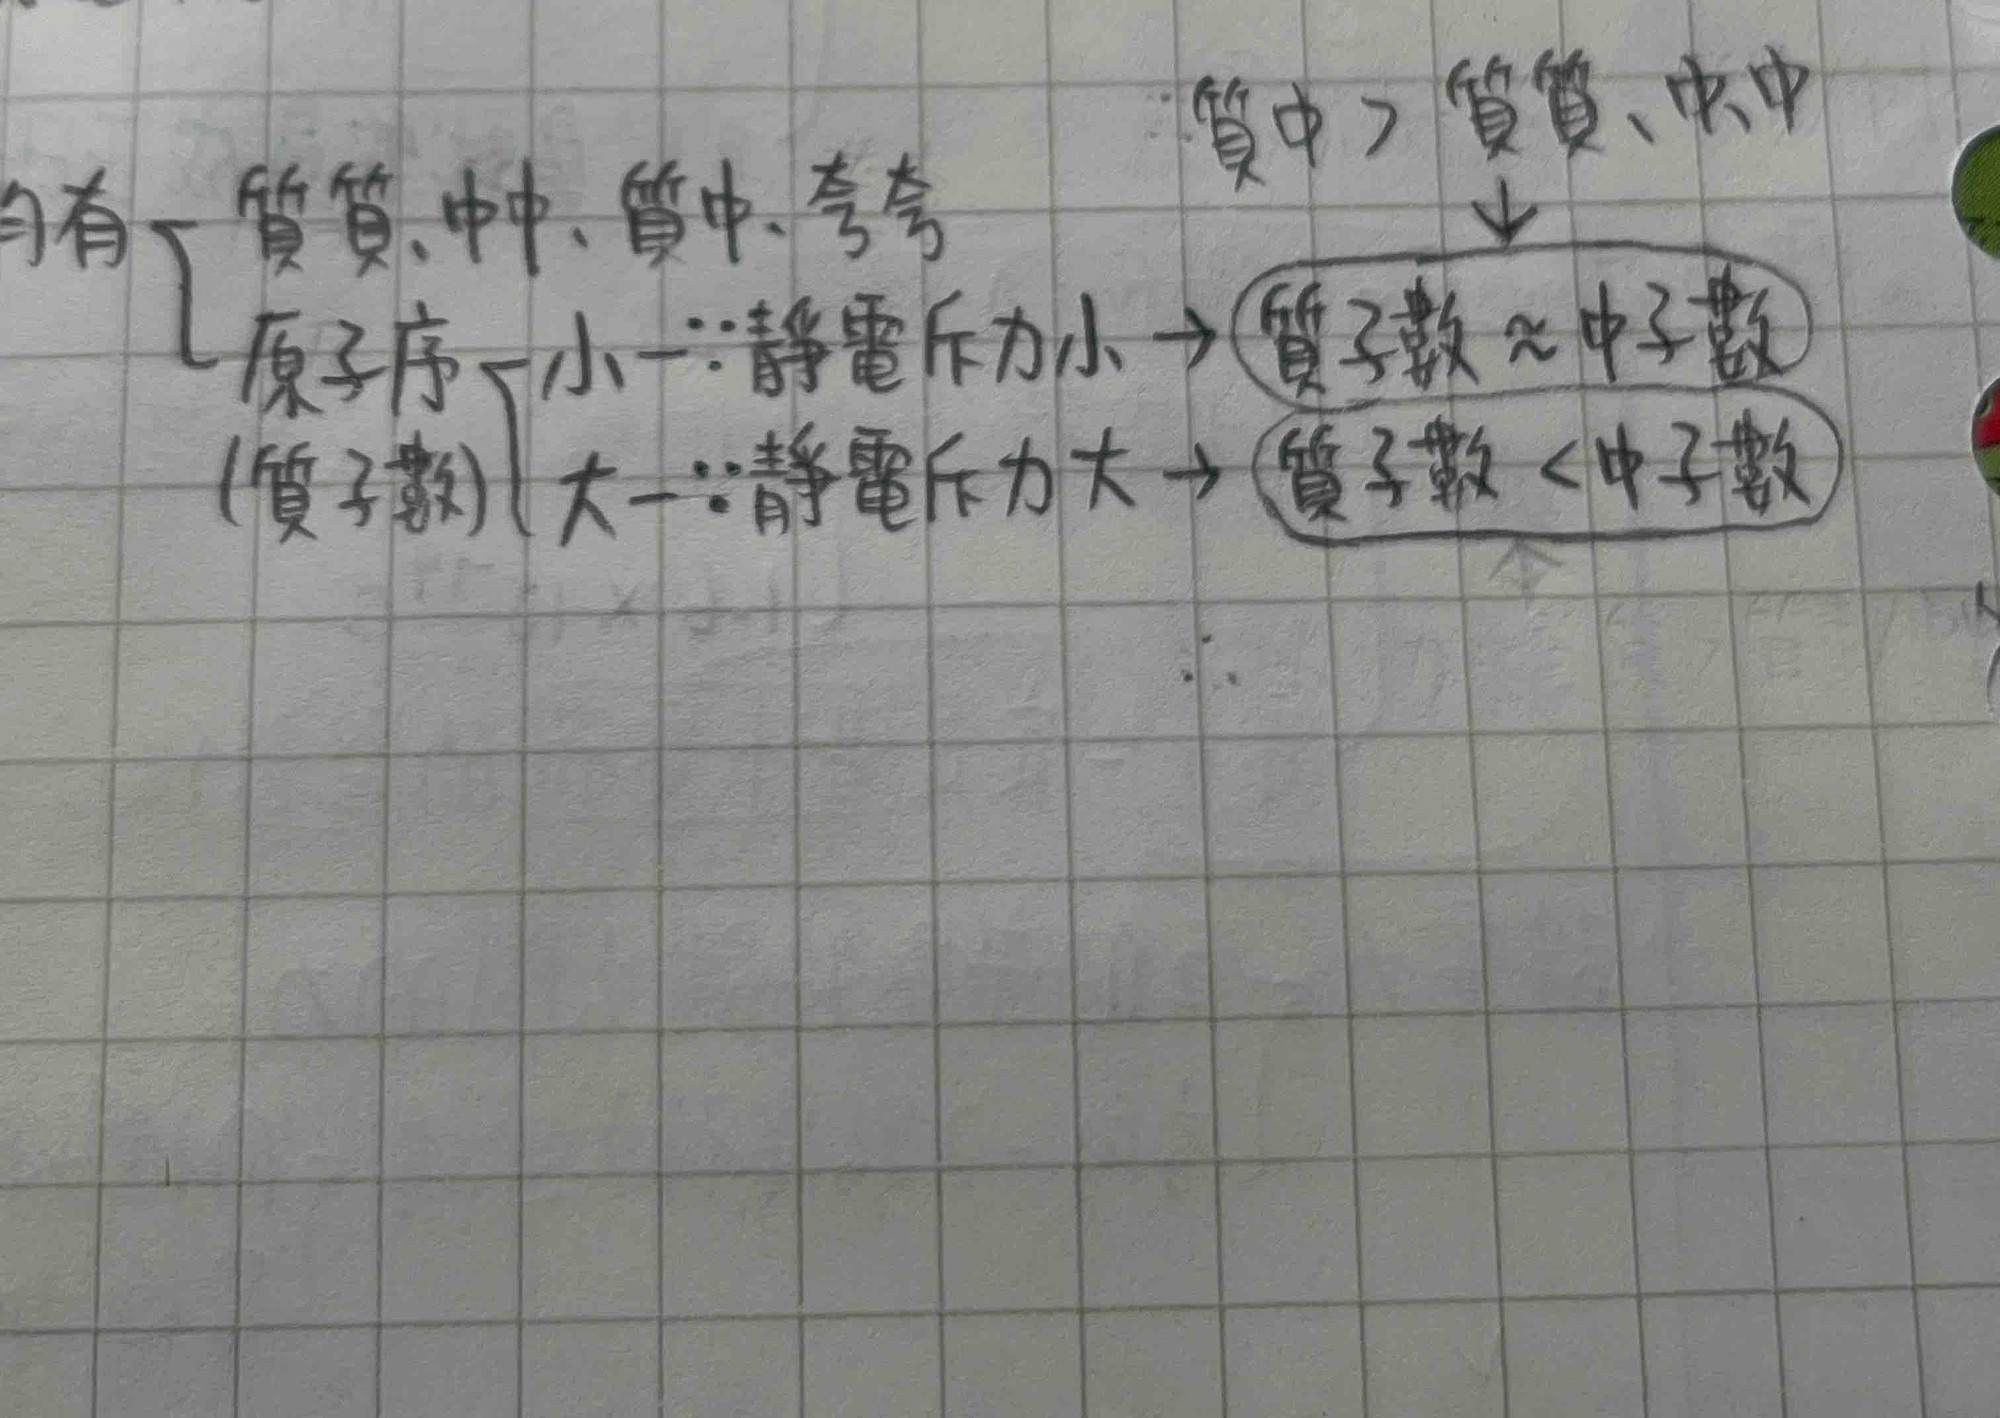 ∵質中 > 質質、中中
均有 質質、中中、質中、夸夸
原子序 小－∵靜電斥力小 → 質子數 ≈ 中子數
(質子數) 大－∵靜電斥力大 → 質子數 < 中子數
∴